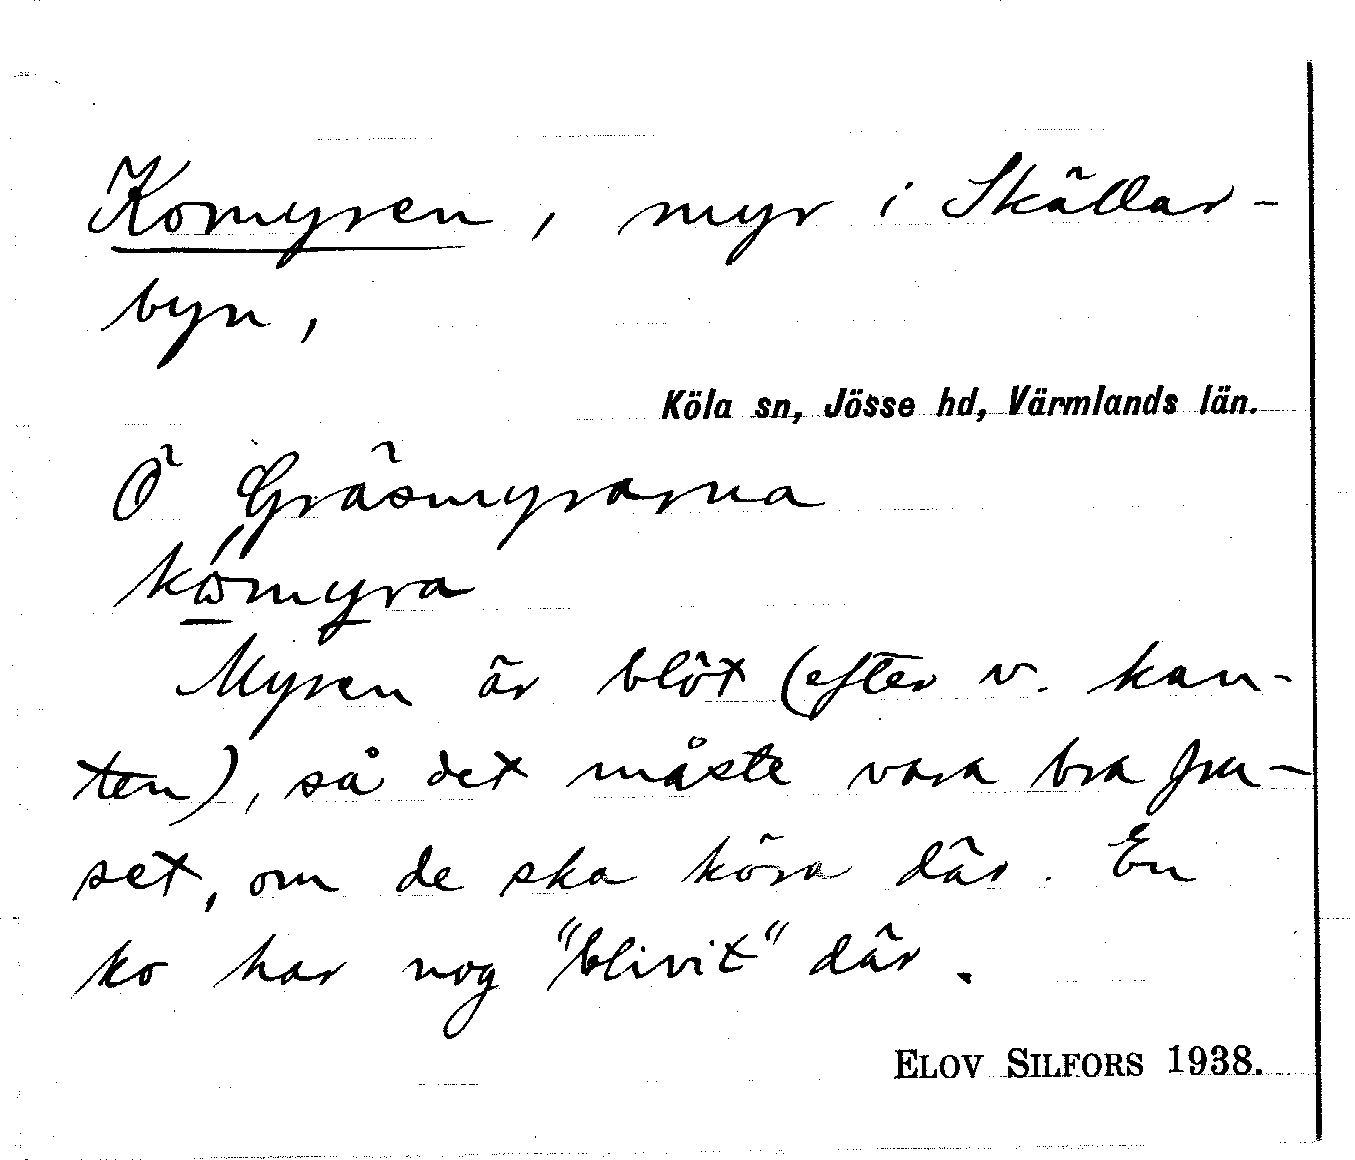 Komyren, myr i Skällar-
byn,
Köla sn, Jösse hd, Värmlands län.
Ö Gräsmyrarna
kómyra
Myren är blöt (efter v. kan-
ten), så det måste vara bra fru-
set, om de ska köra där. En
ko har nog "blivit" där.
ELOV SILFORS 1938.